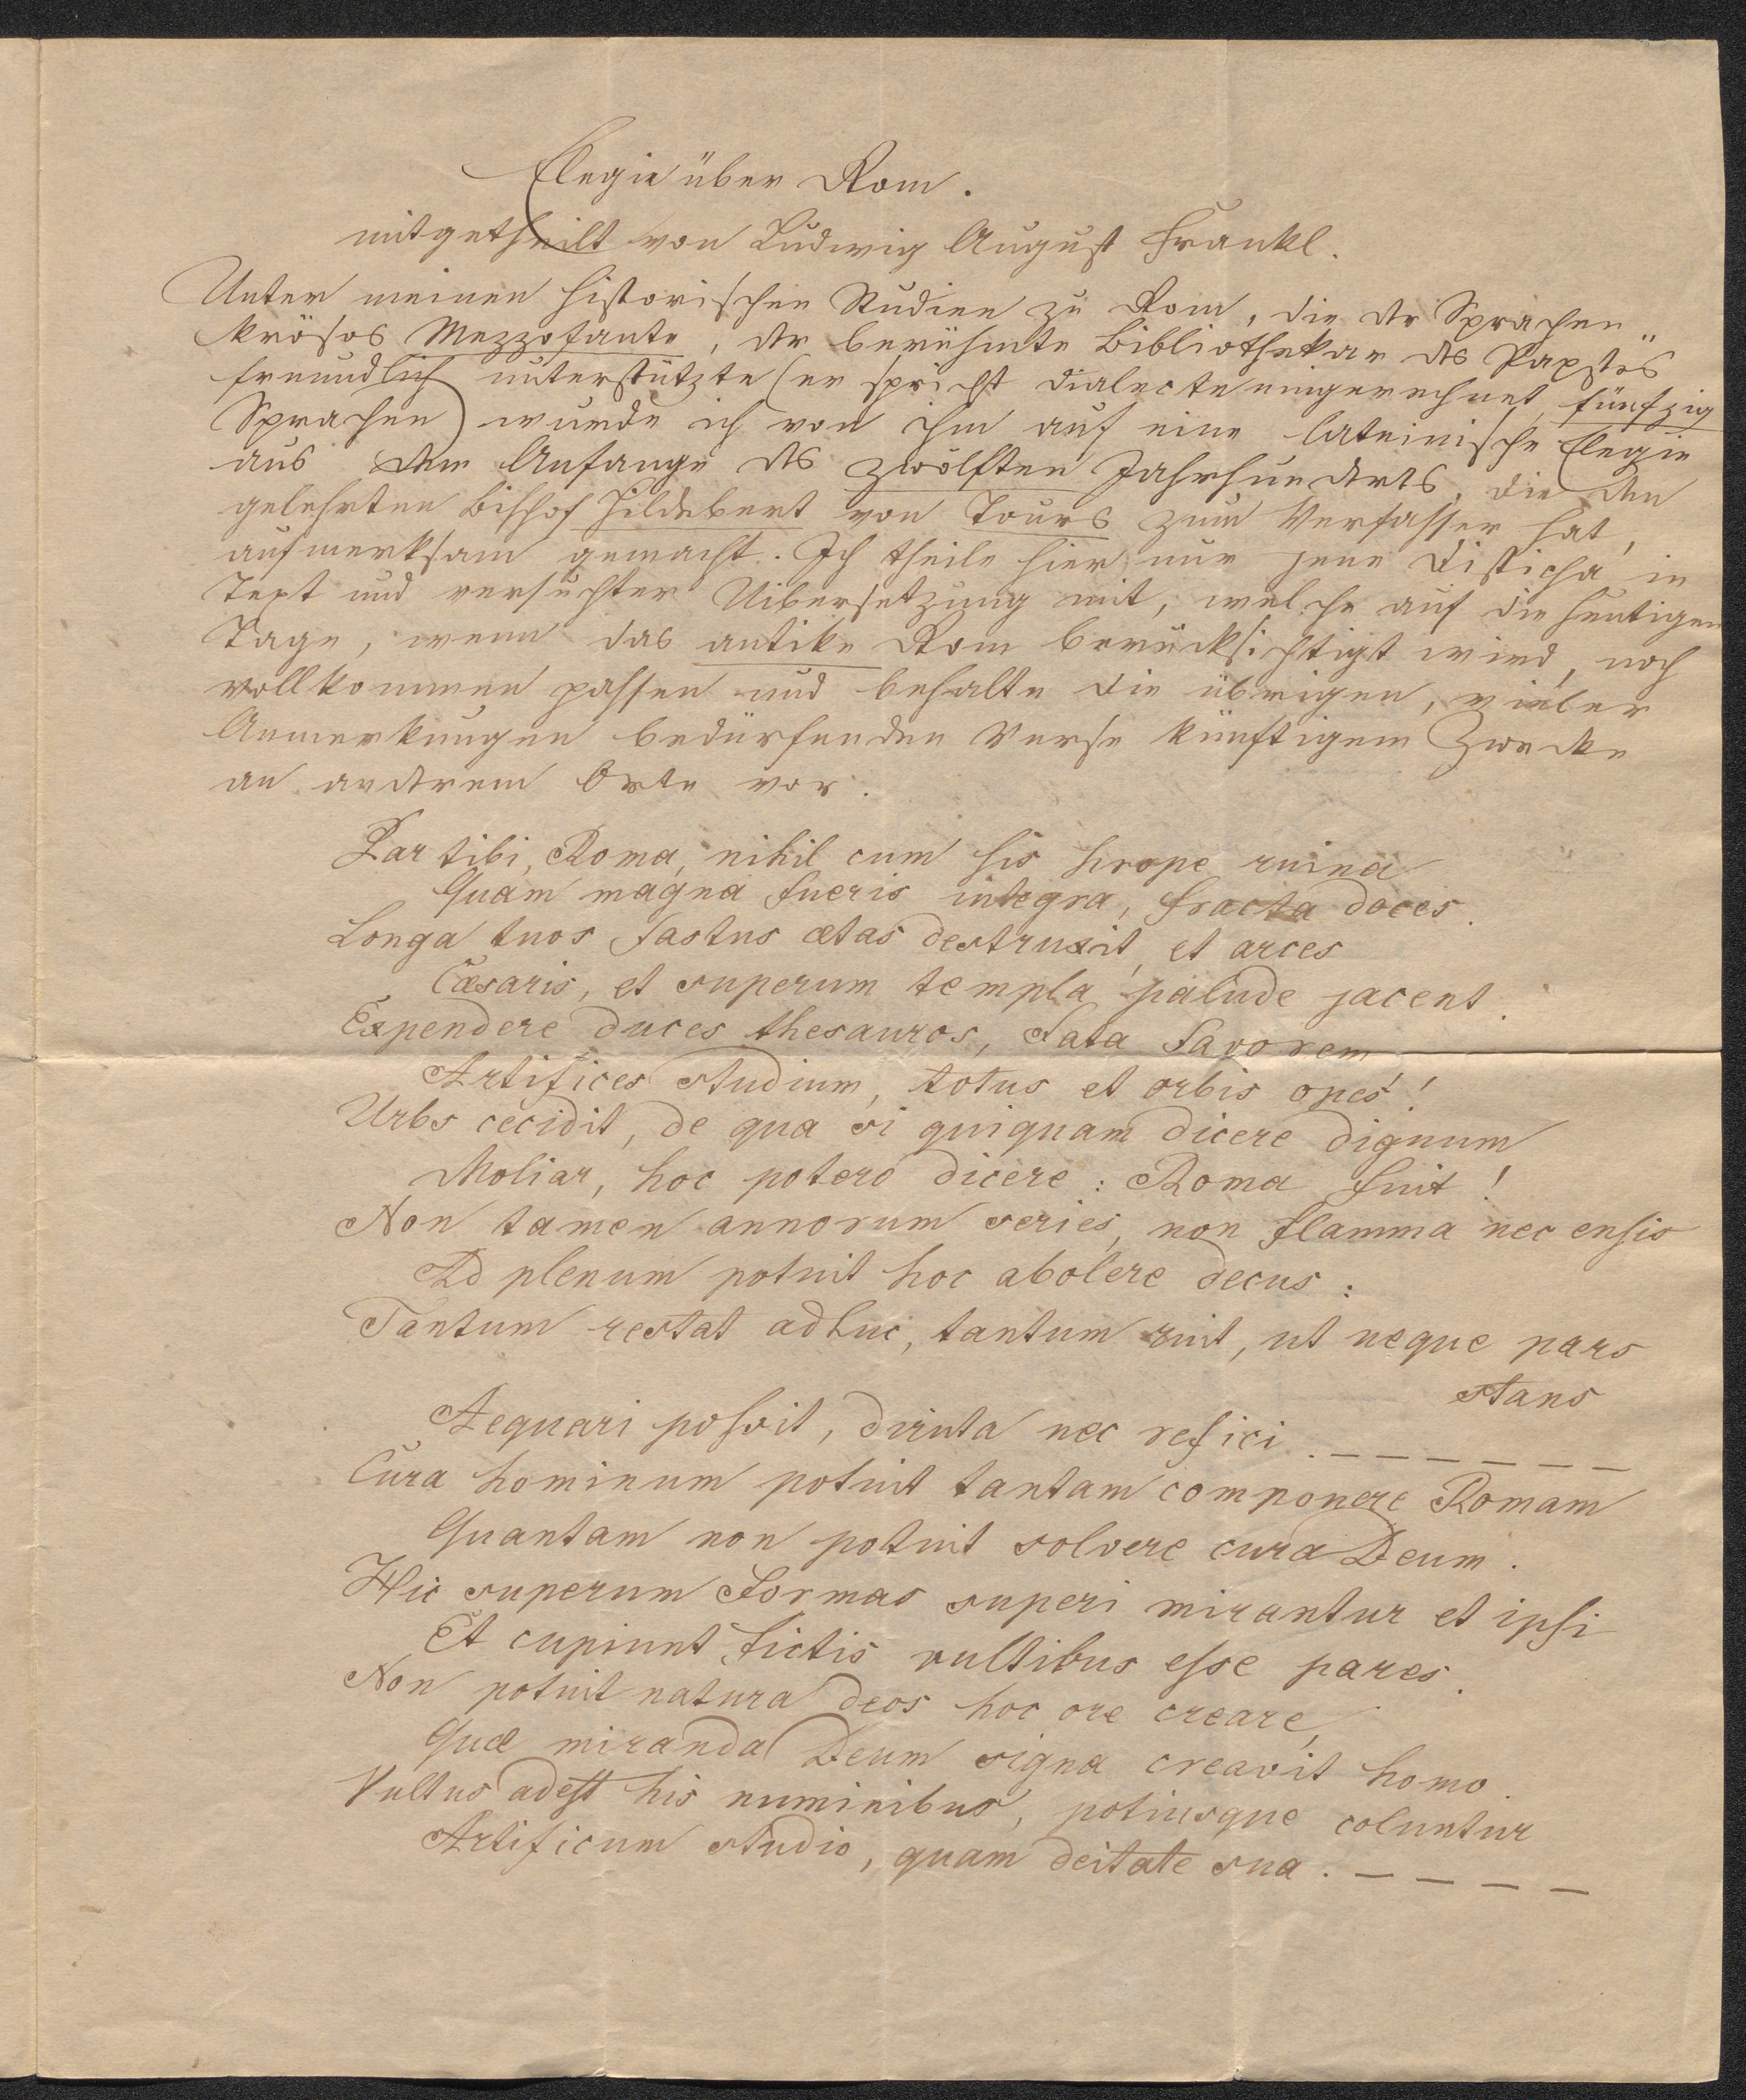 Elegie über Rom.
mitgetheilt von Ludwig August Frankl.
Unter meinen historischen Studien zu Rom, die der Sprachen-
krösos Mezzofante, der berühmte Bibliothekar des Papstes
freundlich unterstützte (er spricht Dialecte eingerechnet, fünfzig
Sprachen) wurde ich von ihm auf eine lateinische Elegie
aus dem Anfange des zwölften Jahrhunderts, die den
gelehrten Bischof Hildebert von Tours zum Verfasser hat,
aufmerksam gemacht. Ich theile hier nur jene Disticha in
Text und versuchter Uibersetzung mit, welche auf die heutigen
Tage, wenn das antike Rom berücksichtigt wird, noch
vollkommen passen und behalte die übrigen, vieler
Anmerkungen bedürfenden Verse künftigem Zwecke
an anderem Orte vor.
Par tibi, Roma, nihil cum sis prope ruina
Quam magna fueris integra, fracta doces.
Longa tuos fastus ætas destruxit, et arces
Cæsaris, et superum templa palude jacent.
Expendere duces thesauros, Fata favorem
Artifices studium, totus et orbis opes!
Urbs cecidit, de qua si quiquam dicere dignum
Moliar, hoc potero dicere: Roma fuit!
Non tamen annorum series, non flamma nec ensis
Ad plenum potuit hoc abolere decus:
Tantum restat adhuc, tantum ruit, ut neque pars
stans
Aequari possit, diruta nec refici. — — — — — — —
Cura hominum potuit tantam componere Romam
Quantam non potuit solvere cura Deum.
Hic superum formas superi mirantur et ipsi
Et cupiunt fictis vultibus esse pares.
Non potuit natura deos hoc ore creare,
Quæ miranda Deum signa creavit homo.
Vultus adest his numinibus, potiusque coluntur
Artificum studio, quam deitate sua. — — — — —